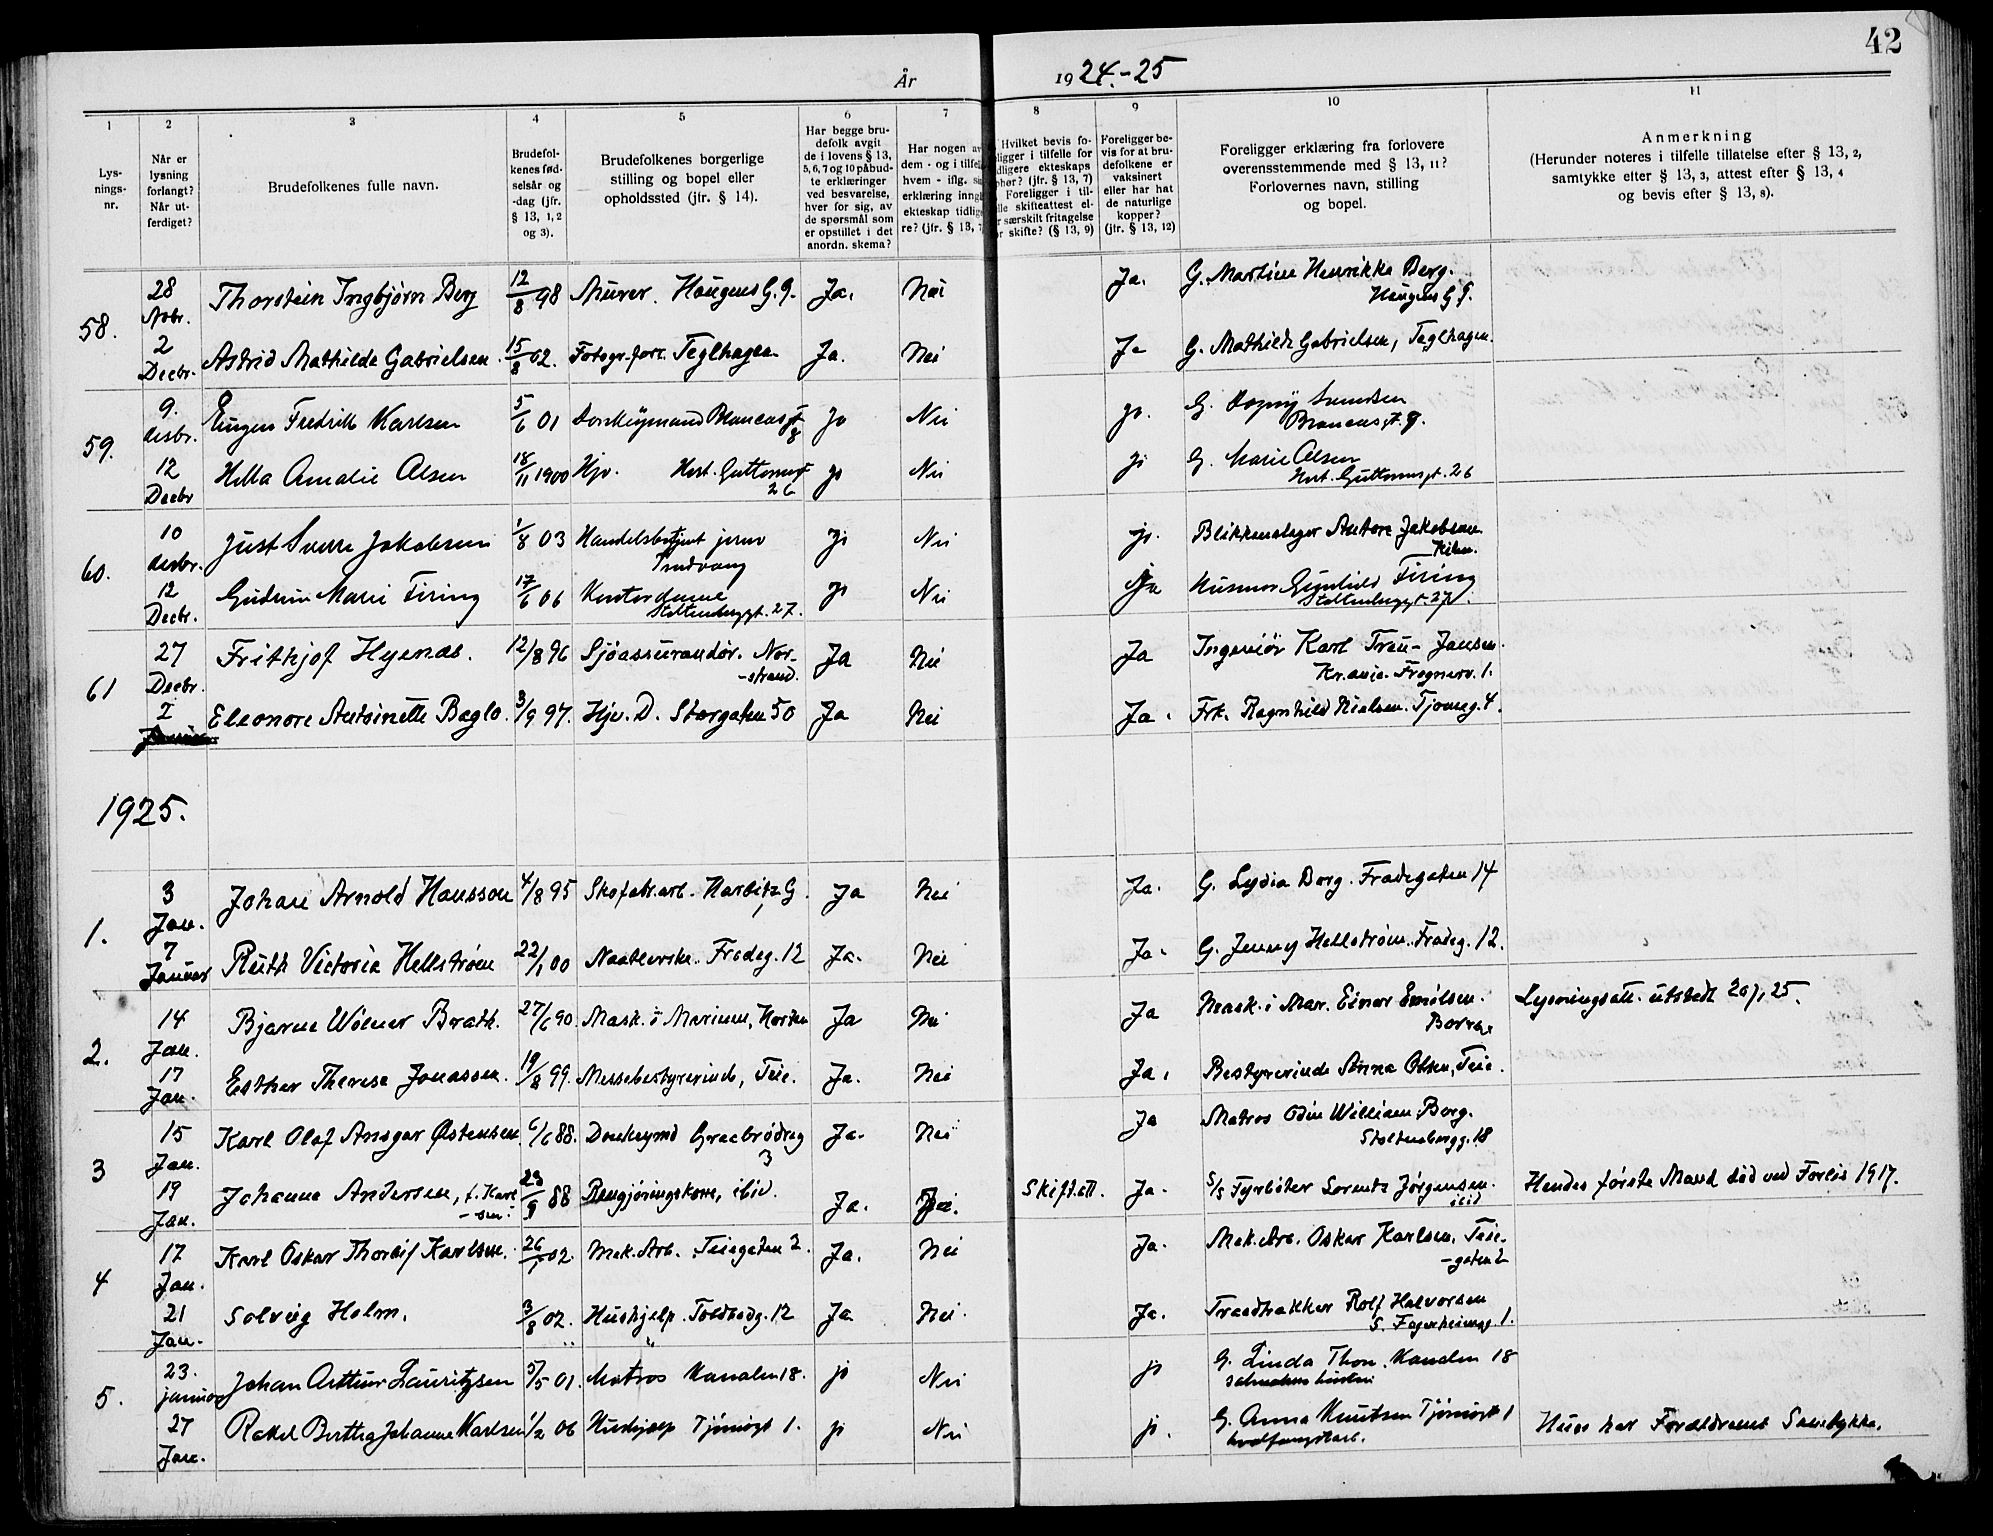 42
År 1924.-25
1 2 3 4 5 6 7 8 9 10 11
Lys-
nings-
nr.
Når er
lysning
forlangt?
Når ut-
ferdiget?
Brudefolkenes fulle navn.
Brudefol-
kenes fød-
selsår og
-dag (jfr.
§ 13, 1, 2
og 3).
Brudefolkenes borgerlige
stilling og bopel eller
opholdssted (jfr. § 14).
Har begge bru-
defolk avgit
de i lovens § 13,
5, 6, 7 og 10 påbud-
te erklæringer
ved besvarelse,
hver for sig, av
de spørsmål som
er opstillet i det
anordn. skema?
Har nogen av
dem - og i tilfelle
hvem - iflg.
erklæring inngå
ekteskap tidlige
re? (jfr. § 13, 7
Hvilket bevis fo-
ligger i tilfelle for
dligere ekteskaps
phør? (jfr. § 13, 7)
Foreligger i til-
lle skifteattest el-
r særskilt fritagelse
or skifte? (§ 13, 9)
Foreligger be-
vis for at bru-
defolkene er
vaksinert
eller har hat
de naturlige
kopper?
(jfr. § 13, 12)
Foreligger erklæring fra forlovere
overensstemmende med § 13, 11?
Forlovernes navn, stilling
og bopel.
Anmerkning
(Herunder noteres i tilfelle tillatelse efter § 13, 2,
samtykke efter § 13, 3, attest efter § 13, 4
og bevis efter § 13, 8).
58. 28 Nobr. Thorstein Ingbjørn Berg 12/8 98 Murer. Haugens G. 9. Ja. Nei Ja. G. Martine Henrikke Berg.
Haugens G. 9.
2 Decbr. Astrid Mathilde Gabrielsen. 15/8 02. Fotogr.forr. Teglhagen Ja. Nei Ja G. Mathilde Gabrielsen, Teglhagen.
59. 9. desbr. Eugen Fredrik Karlsen 5/6 01 Donkeymand Ja Nei ja. G. Dagny
12 Decbr Hilla Amalie Olsen 18/11 1900 Hjv. Hert. Guttormsgt 26 ja Nei ja G. Marie Olsen
Hert. Guttormsgt. 26
60. 10 desbr. Just Sverre Jakobsen 1/8 03 Handelsbetjent
Trudvang ja Nei ja. Blikkenslager Anton Jakobsen
12 Decbr. Gudrun Marie Firing 17/6 06 Kontordame
Stoltenbergsgt. 27. ja Nei Ja Gunhild Firing
Stoltenbergsgt. 27.
61 27 Decbr. Frithjof Hyenæs. 12/8 96 Sjøassurandør. Nor-
-strand. Ja Nei Ja Ingeniør Karl Frau-Jansen.
Kr.ania. Frognerv. 1.
2 Eleonore Antoinette Baglo. 3/9 97. Hjv. D. Storgaten 50 Ja Nei Ja. Frk. Ragnhild Nielsen. Tjømeg. 4.
1925.
1. 3 Jan. Johan Arnold Hansson 4/8 95 Skofabr.arb. Narbits G. Ja Nei Ja. G. Lydia Borg. Fradegaten 14
7 Januar Ruth Victoria Hellstrøm 22/1 00 Naatlerske. Fradeg. 12 Ja. Nei Ja. G. Jenny Hellstrøm. Fradeg. 12.
2. 14 Jan. Bjarne Wilner Brath. 27/6 90. Mask. i Marinen, Horten Ja Nei Ja Mask. i Mar. Einar Emilsen.
Borre Lysningsatt. utstedt 20/1 25.
17 Jan. Esther Therese Jonassen. 19/8 99. Messebestyrerinde, Teie. Ja. Nei Ja. Bestyrerinde Anna Olsen, Teie.
3 15 Jan. Karl Olaf Ansgar Østensen 6/6 88. Donkeymd Graabrødreg
3 Ja. Nei Ja Matros Odin William Borg.
Stoltenbergg. 18
19 Jan. Johanna Andersen, f. Karl
-sen. 23/9 88 Rengjøringskone, ibid. Ja. Ja. Skift.att. Ja. S/S Fyrbøter Lorentz Jørgensen.
ibid Hendes første Mand død ved Forlis 1917.
4 17 Jan. Karl Oskar Thorleif Karlsen. 26/1 02. Mek. Arb. Teiegaten 2. Ja. Nei Ja. Mek. Arb. Oskar Karlsen. Teie-
-gaten 2
21 Jan. Solveig Holm. 3/8 02. Hushjelp. Toldbodg. 12 Ja Nei. Ja. Traadtrækker Rolf Halvorsen
S. Fagerheimsg 1.
5. 23. januar Johan Arthur Lauritzsen 5/5 01. Matros Kanalen 18. ja Nei ja G. Linda Thon. Kanalen 18
27 Jan. Rakel Berthea Johanne Karlsen 1/2 06 Hushjælp Tjømegt 1. ja Nei ja. G. Anna Knutsen Tjømegt 1
hvalfangstarb. Hun har Forældrenes Samtykke.